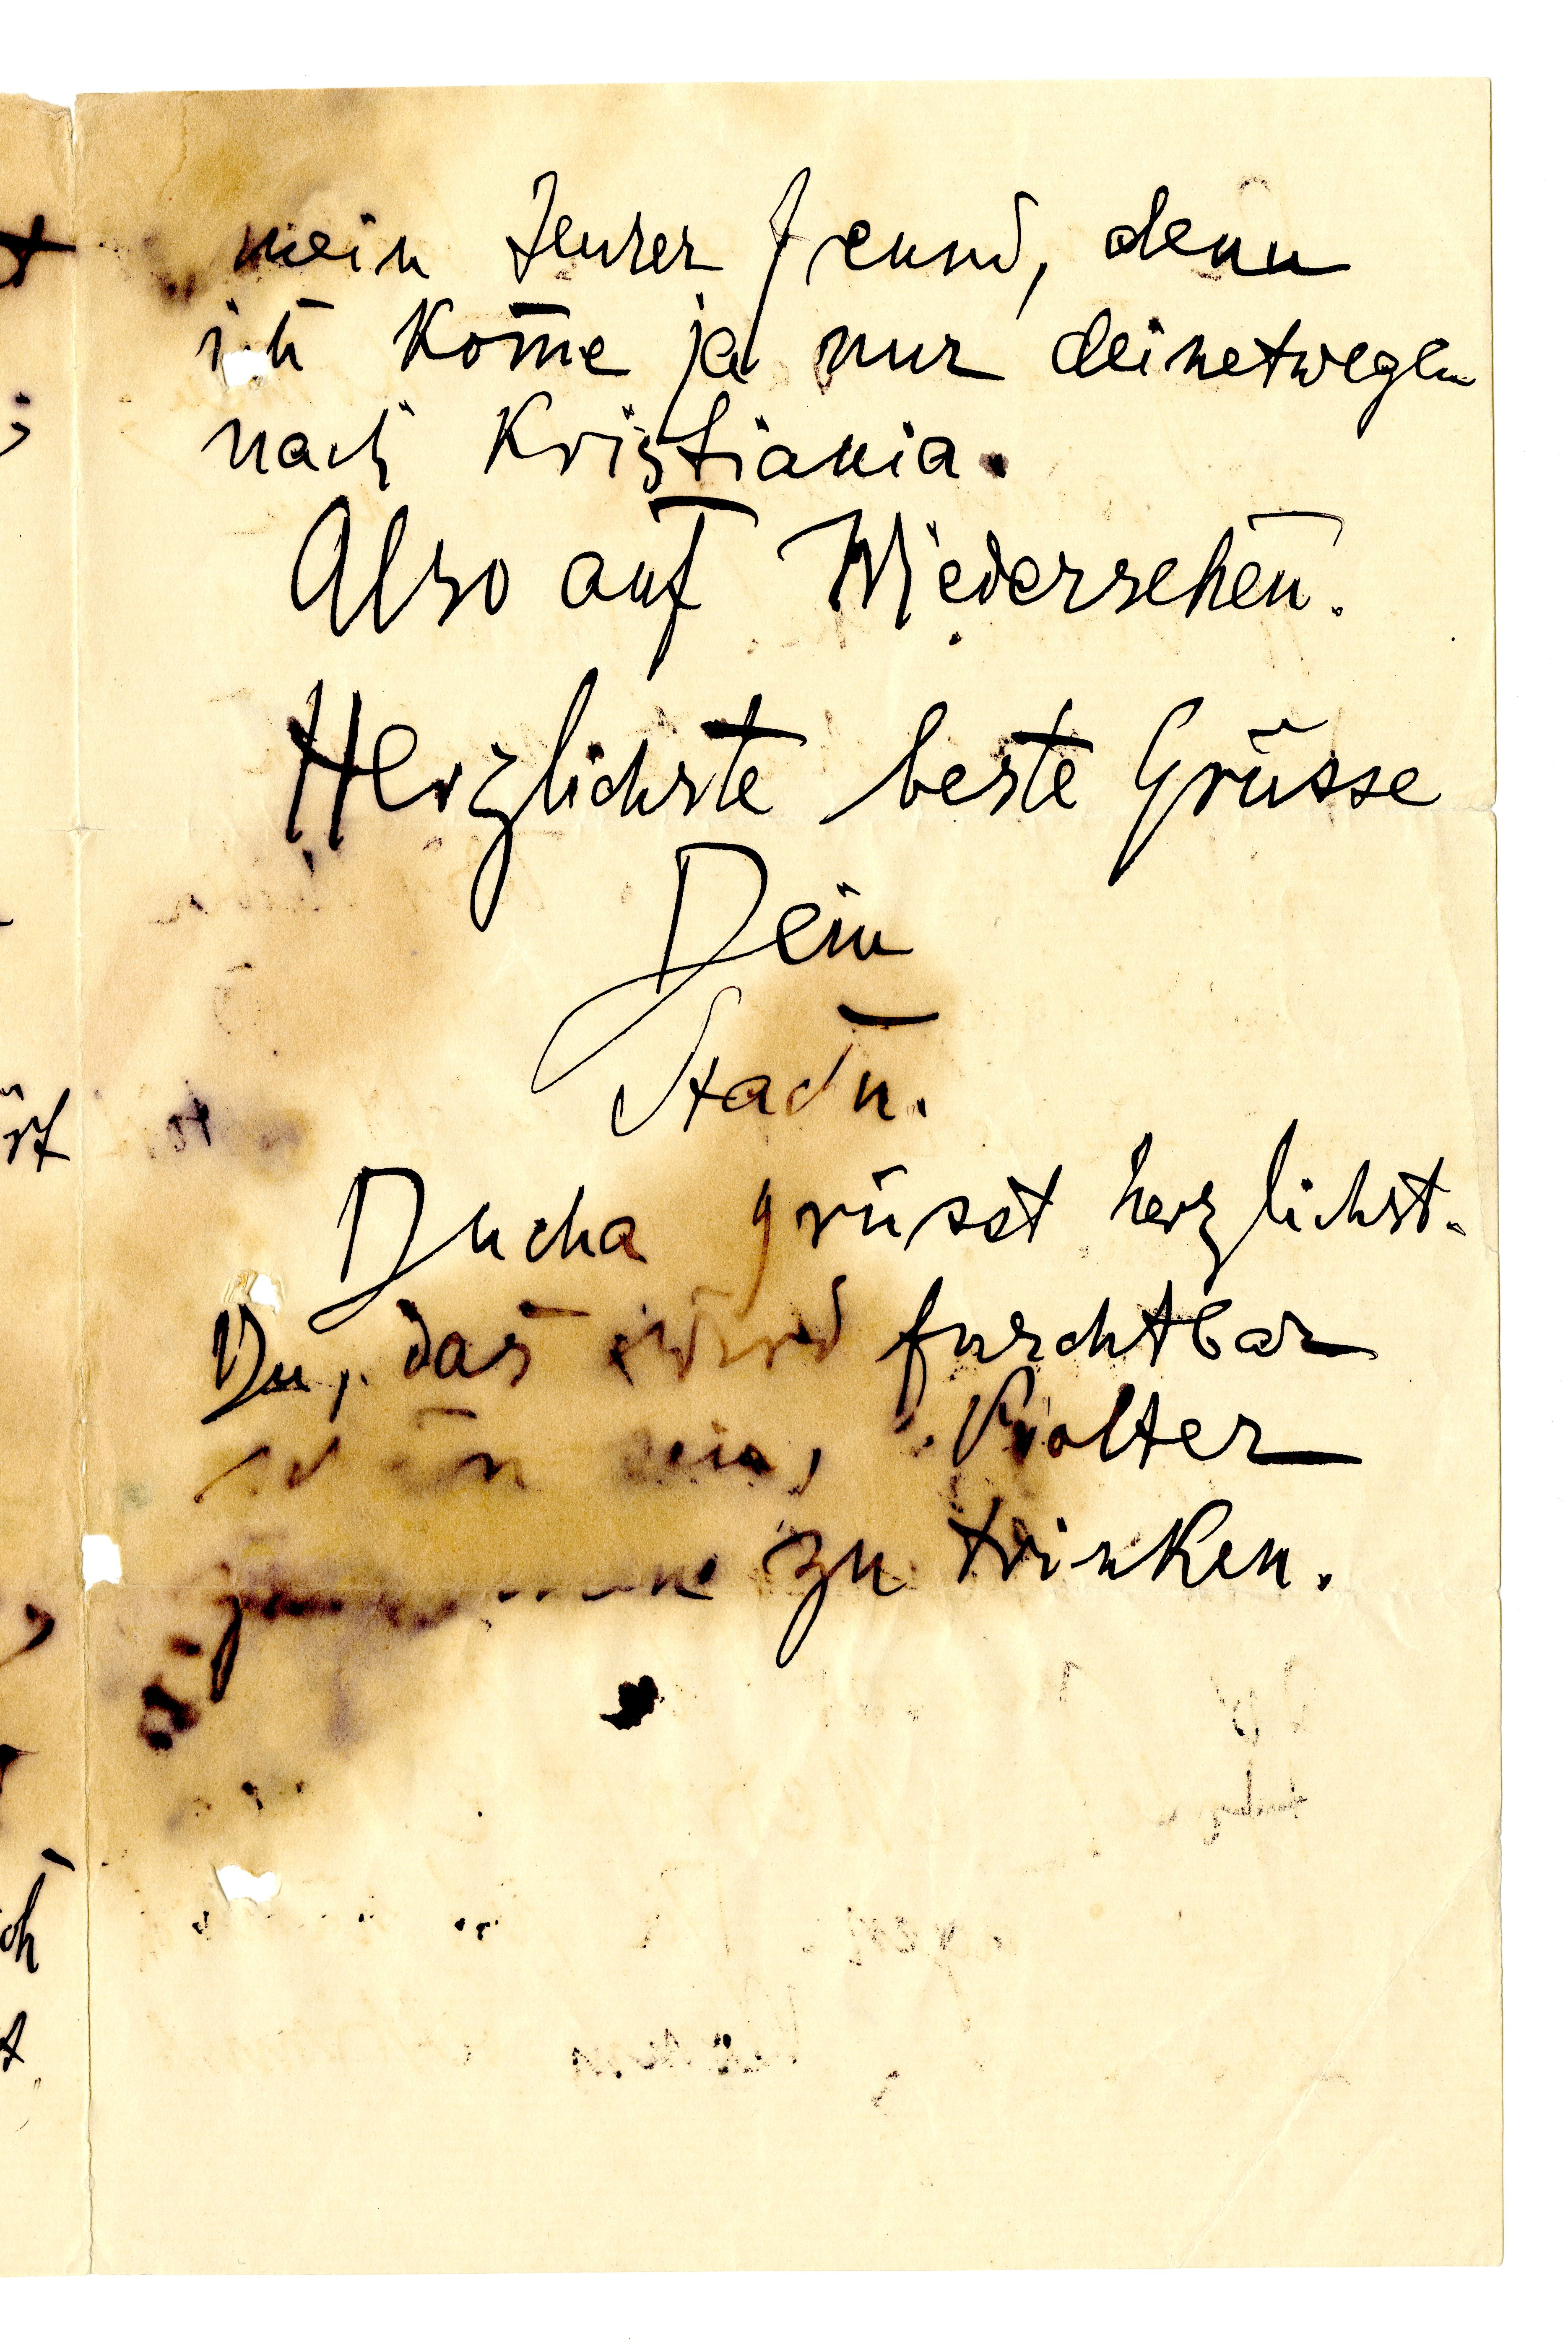 mein teurer Freund, denn
ich kom̄e ja nur deinetwegen
nach Kristiania.
Also auf Wiedersehen.
Herzlichste beste Grüsse
Dein
Stach.
Ducha grüsst herzlichst.
Du, das wird furchtbar
schön sein, Pjolter
zu trinken.